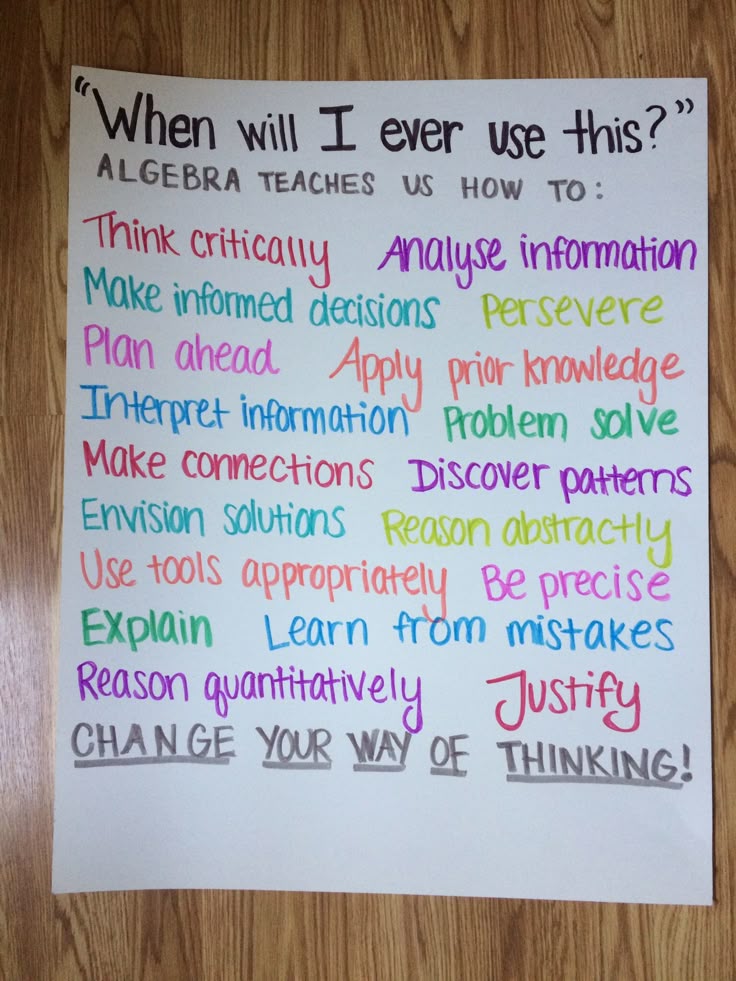 "When will I ever use this?"
ALGEBRA TEACHES US HOW TO:
Think critically Analyse information
Make informed decisions Persevere
Plan ahead Apply prior knowledge
Interpret information Problem solve
Make connections Discover patterns
Envision solutions Reason abstractly
Use tools appropriately Be precise
Explain Learn from mistakes
Reason quantitatively Justify
CHANGE YOUR WAY OF THINKING!